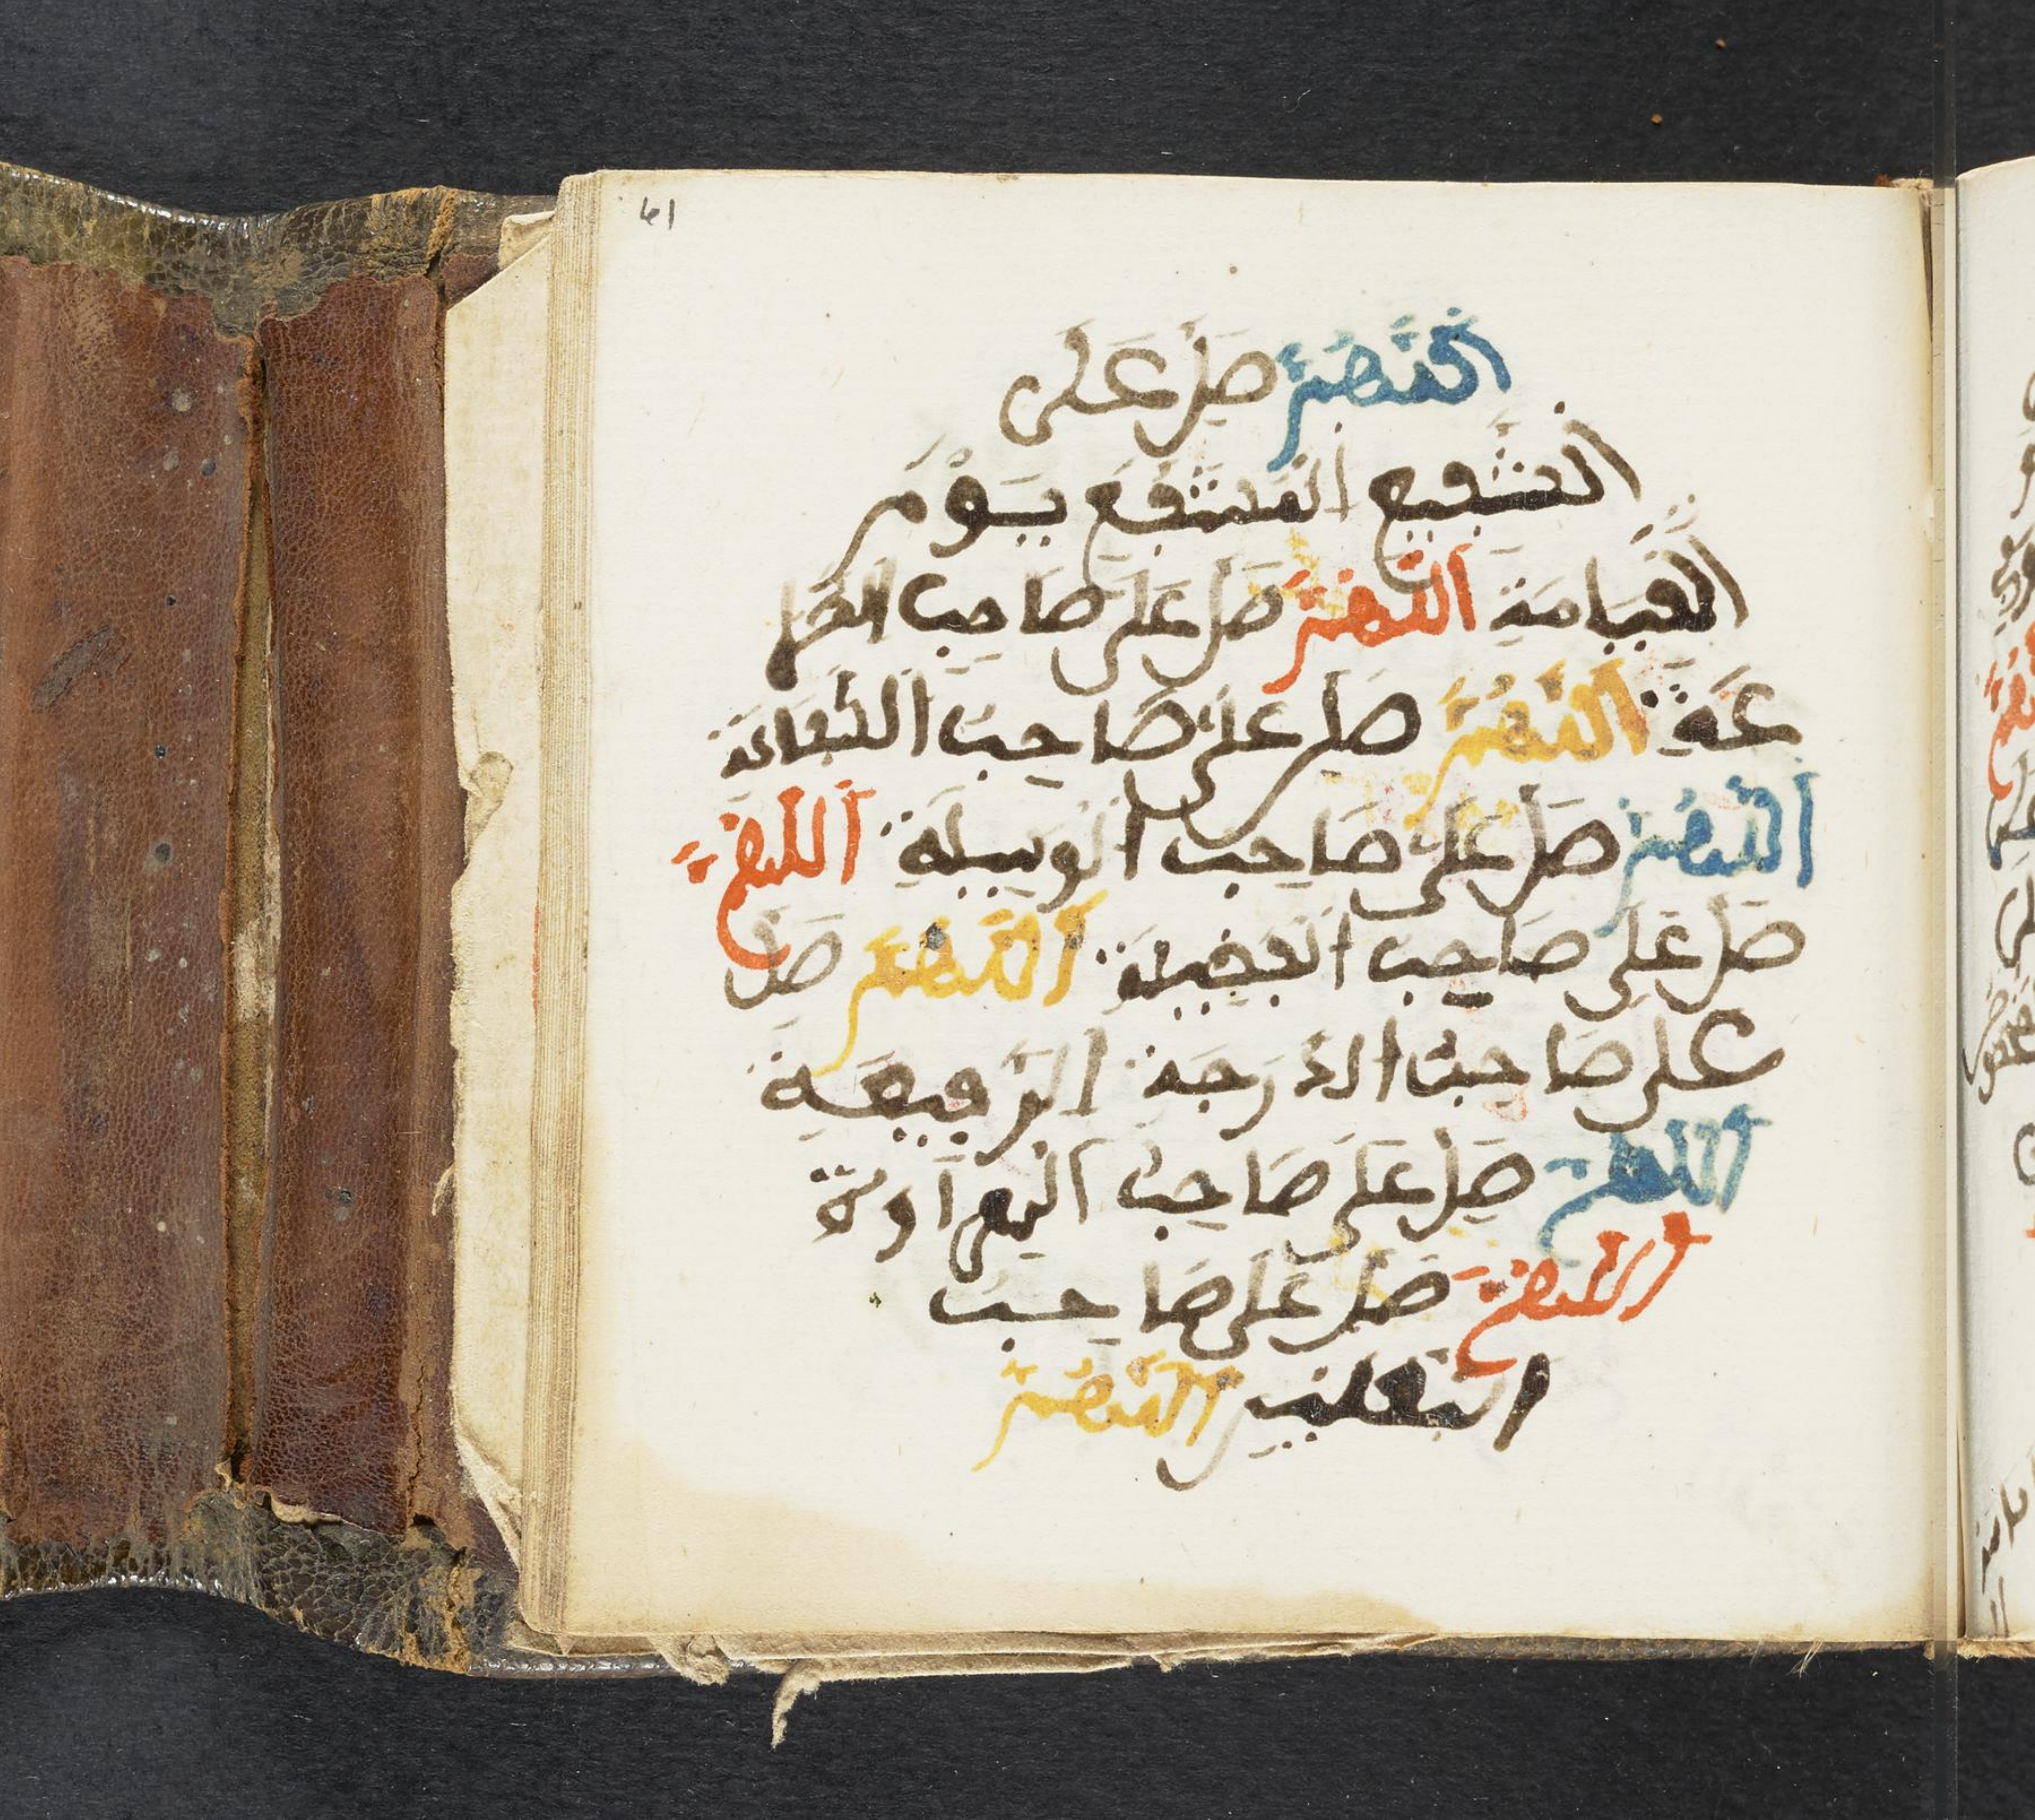 61
اللهم صل على
الشفيع المشفع يوم
القيامة اللهم صل على صاحب الضرا
عة اللهم صل على صاحب الشفاعة
اللهم صل على صاحب الوسيلة اللهم
صل على صاحب الفضيلة اللهم صل
على صاحب الدرجة الرفيعة
اللهم صل على صاحب الهراوة
اللهم صل على صاحب
النعلين اللهم